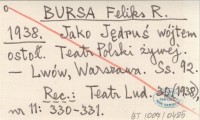 BURSA Feliks R.
1938. Jako Jędruś wójtem
ostał. Teatr Polski żywej.
– Lwów, Warszawa. Ss. 92.
Rec.: Teatr Lud. 30 (1938),
nr 11: 330-331.